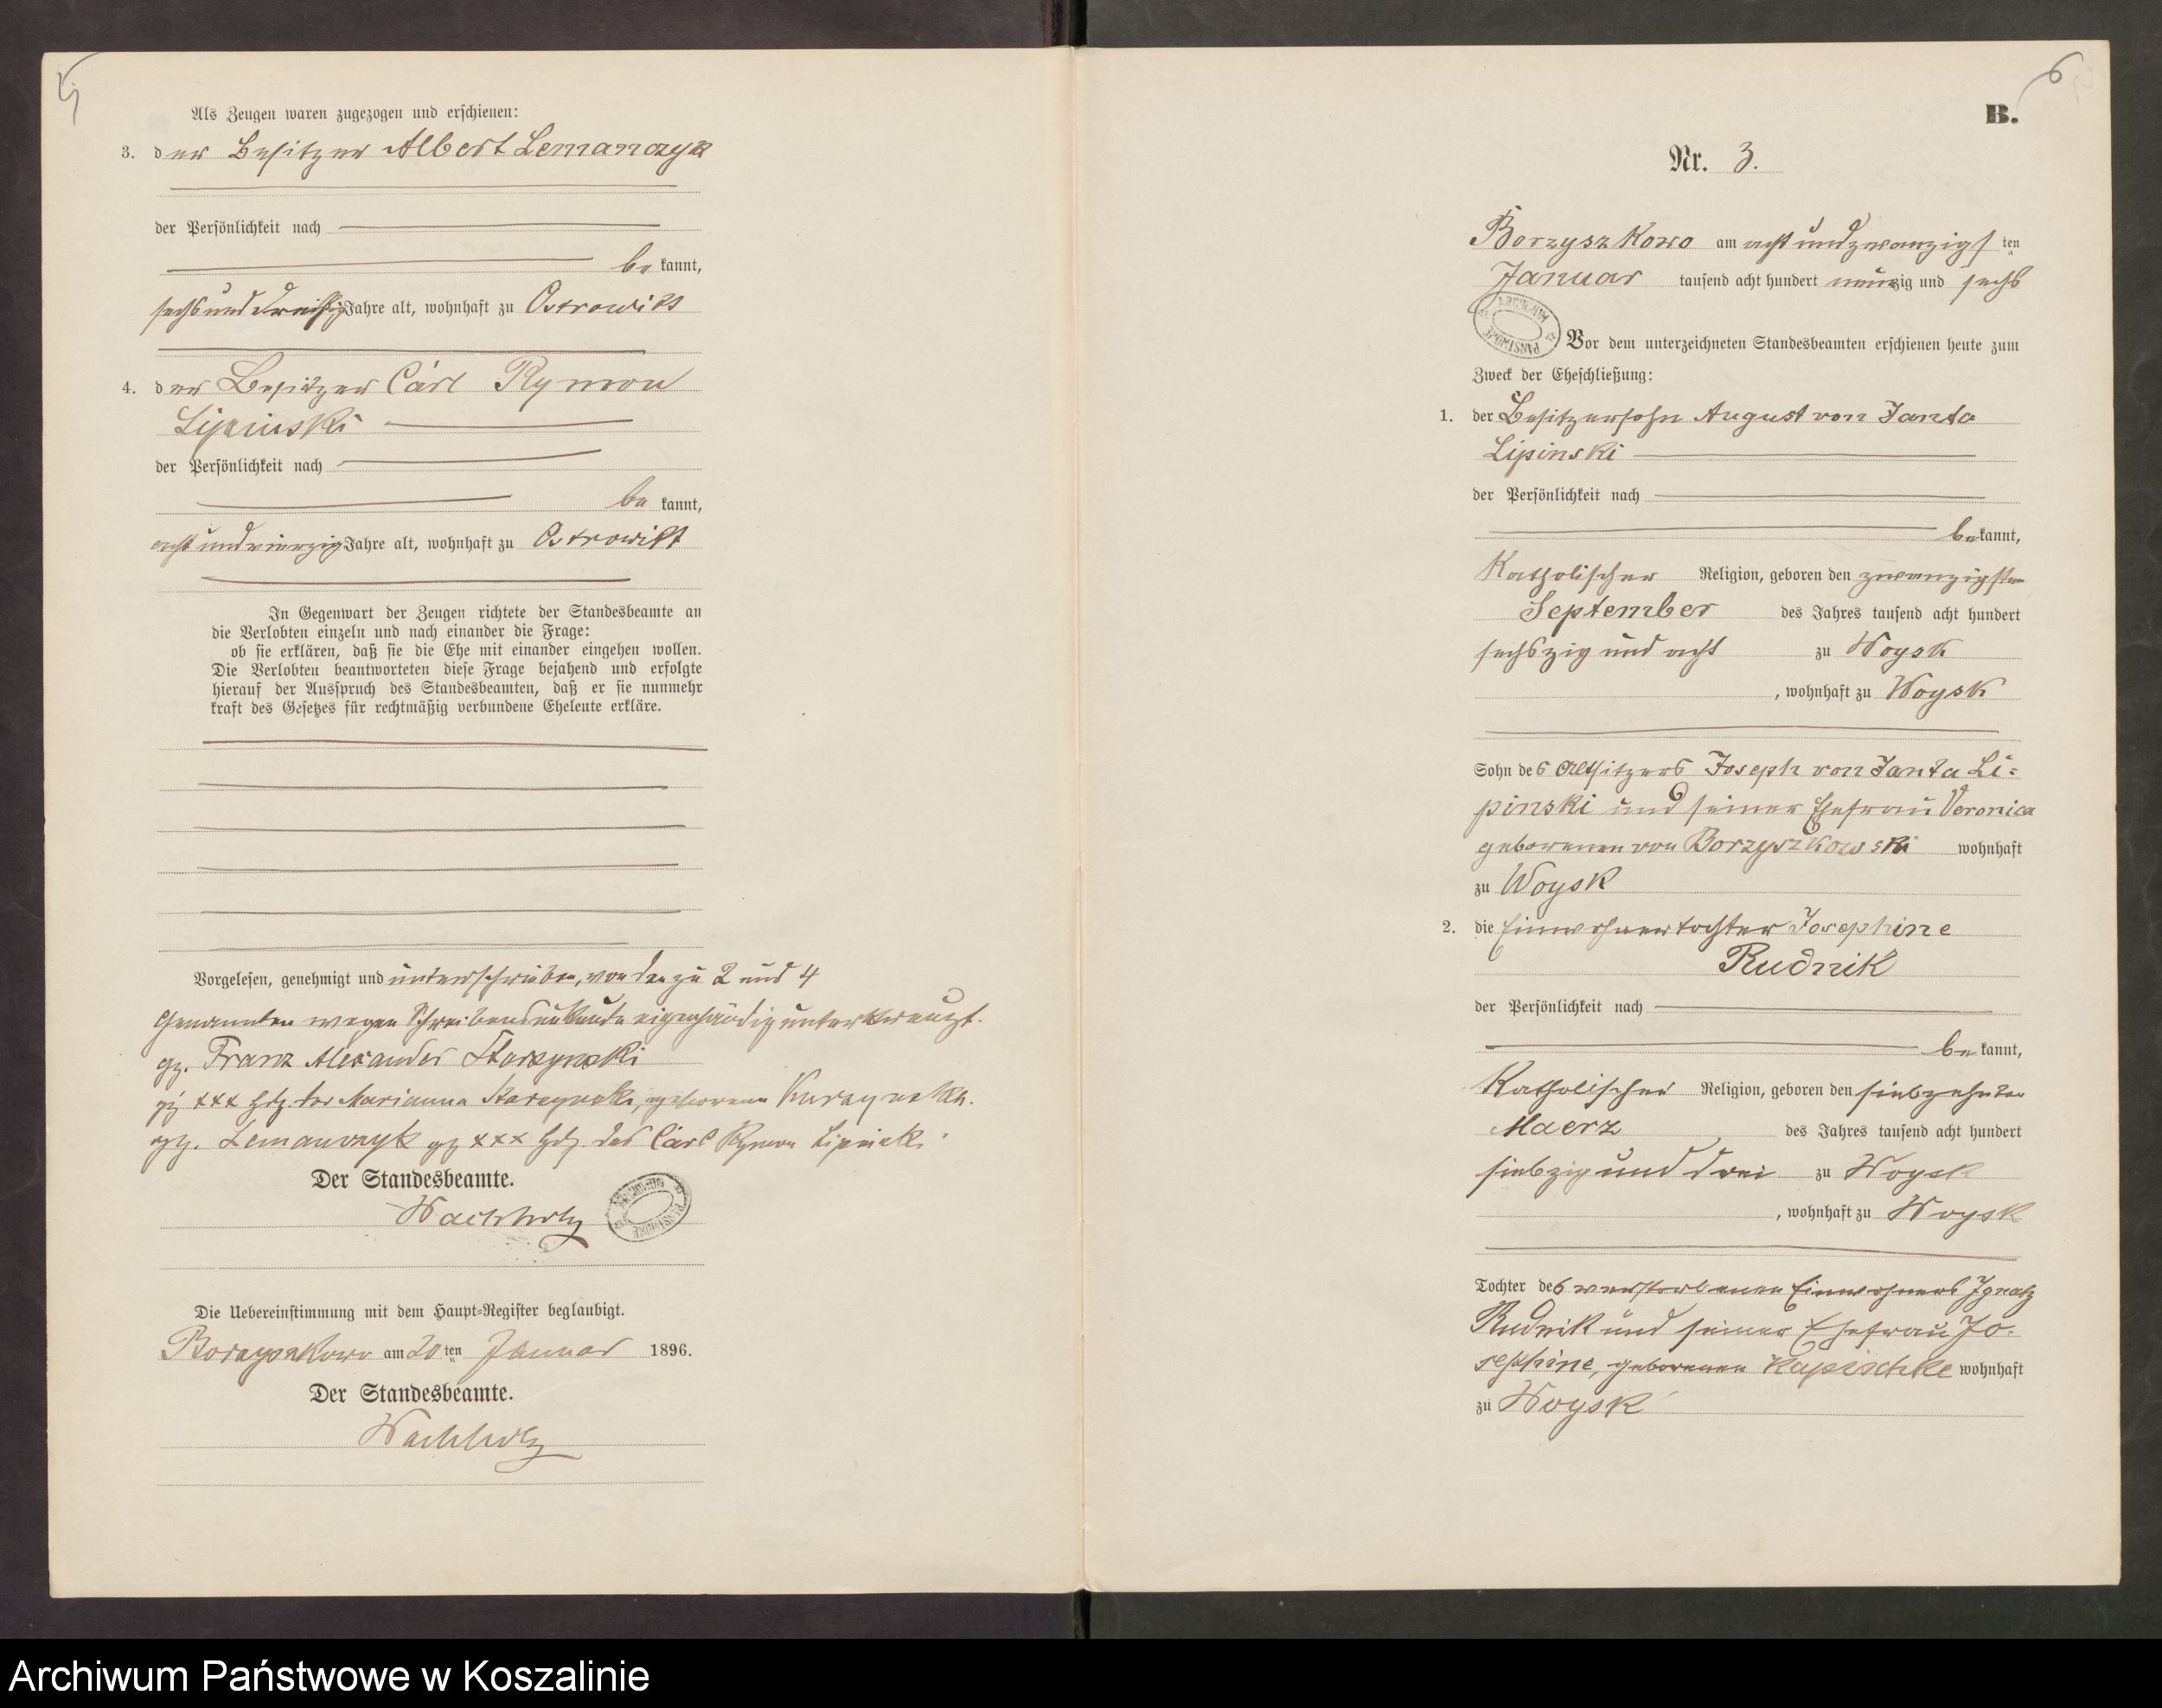 Als Zeugen waren zugezogen und erschienen:
3. der Besitzer Albert Lemanczyk
der Persönlichkeit nach
be kannt,
sechs und dreißig Jahre alt, wohnhaft zu Ostrowitt
4. der Besitzer Carl Rymon
Lipinski
der Persönlichkeit nach
be kannt,
acht und vierzig Jahre alt, wohnhaft zu Ostrowitt
In Gegenwart der Zeugen richtete der Standesbeamte an
die Verlobten einzeln und nach einander die Frage:
ob sie erklären, daß sie die Ehe mit einander eingehen wollen.
Die Verlobten beantworteten diese Frage bejahend und erfolgte
hierauf der Ausspruch des Standesbeamten, daß er sie nunmehr
kraft des Gesetzes für rechtmäßig verbundene Eheleute erkläre.
Vorgelesen, genehmigt und unterschrieben, von den zu 2 und 4
Genannten wegen Schreibensunkunde eigenhändig unterkreuzt.
gz. Franz Alexander
gz xxx Hdz. der Marianna geborene
gz. Lemanczyk gz xxx Hdz. des Carl Rymon Lipinski.
Der Standesbeamte.
Wachholz
Die Uebereinstimmung mit dem Haupt-Register beglaubigt.
Borzyszkowo am 20 ten Januar 1896.
Der Standesbeamte.
Wachholz
6
B.
Nr. 3.
Borzyszkowo am acht und zwanzigsten
Januar tausend acht hundert neunzig und sechs
Vor dem unterzeichneten Standesbeamten erschienen heute zum
Zweck der Eheschließung:
1. der Besitzersohn August von Janta
Lipinski
der Persönlichkeit nach
be kannt,
Katholischer Religion, geboren den zwanzigsten
September des Jahres tausend acht hundert
sechszig und acht zu Woysk
, wohnhaft zu Woysk
Sohn des Altsitzers Joseph von Janta Li=
pinski und seiner Ehefrau Veronica
geborenen von Borzyszkowski wohnhaft
zu Woysk
2. die Einwohnertochter Josephine
Rudnik
der Persönlichkeit nach
be kannt,
Katholischer Religion, geboren den siebzehnten
Maerz des Jahres tausend acht hundert
siebzig und drei zu Woysk
, wohnhaft zu Woysk
Tochter des verstorbenen Einwohners Ignatz
Rudnik und seiner Ehefrau Jo-
sephine, geborenen Kapischke wohnhaft
zu Woysk
Archiwum Państwowe w Koszalinie